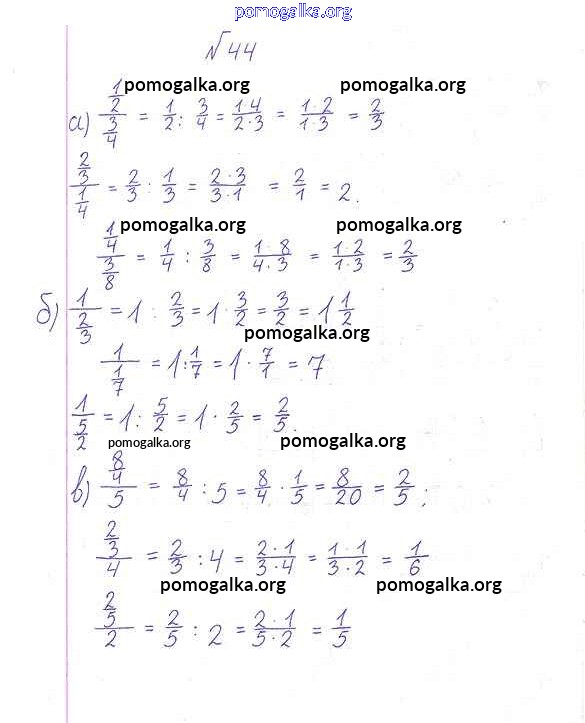 pomogalka.org
№44
pomogalka.org pomogalka.org
а) (1/2)/(3/4) = 1/2 : 3/4 = 1·4/2·3 = 1·2/1·3 = 2/3
(2/3)/(1/4) = 2/3 : 1/3 = 2·3/3·1 = 2/1 = 2.
pomogalka.org pomogalka.org
(1/4)/(3/8) = 1/4 : 3/8 = 1·8/4·3 = 1·2/1·3 = 2/3
б) 1/(2/3) = 1 : 2/3 = 1 · 3/2 = 3/2 = 1 1/2
pomogalka.org
1/(1/7) = 1 : 1/7 = 1 · 7/1 = 7
1/(5/2) = 1 : 5/2 = 1 · 2/5 = 2/5.
pomogalka.org pomogalka.org
в) (8/4)/5 = 8/4 : 5 = 8/4 · 1/5 = 8/20 = 2/5;
(2/3)/4 = 2/3 : 4 = 2·1/3·4 = 1·1/3·2 = 1/6
pomogalka.org pomogalka.org
(2/5)/2 = 2/5 : 2 = 2·1/5·2 = 1/5